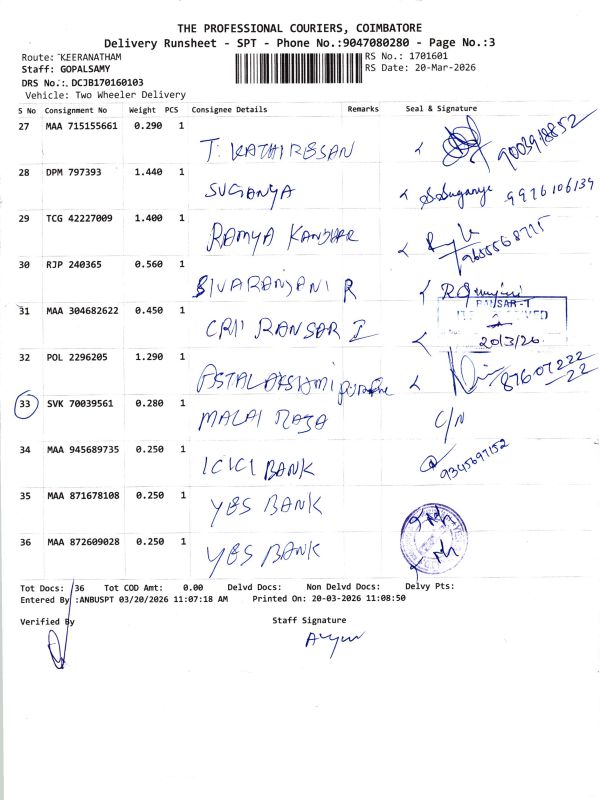 THE PROFESSIONAL COURIERS, COIMBATORE
Delivery Runsheet - SPT - Phone No.:9047080280 - Page No.:3
Route: KEERANATHAM RS No.: 1701601
Staff: GOPALSAMY RS Date: 20-Mar-2026
DRS No.: DCJB170160103
Vehicle: Two Wheeler Delivery
S No Consignment No Weight PCS Consignee Details Remarks Seal & Signature
27 MAA 715155661 0.290 1
T. KATHIRESAN 9003918852
28 DPM 797393 1.440 1
SUGANYA S.Suganya 9976106139
29 TCG 42227009 1.400 1
RAMYA
30 RJP 240365 0.560 1
SIVARANJANI R
31 MAA 304682622 0.450 1
20/3/26
32 POL 2296205 1.290 1
8760722222
33 SVK 70039561 0.280 1
MALAI RAJA C/N
34 MAA 945689735 0.250 1
ICICI BANK 9345697152
35 MAA 871678108 0.250 1
YES BANK
36 MAA 872609028 0.250 1
YES BANK
Tot Docs: 36 Tot COD Amt: 0.00 Delvd Docs: Non Delvd Docs: Delvy Pts:
Entered By :ANBUSPT 03/20/2026 11:07:18 AM Printed On: 20-03-2026 11:08:50
Verified By Staff Signature